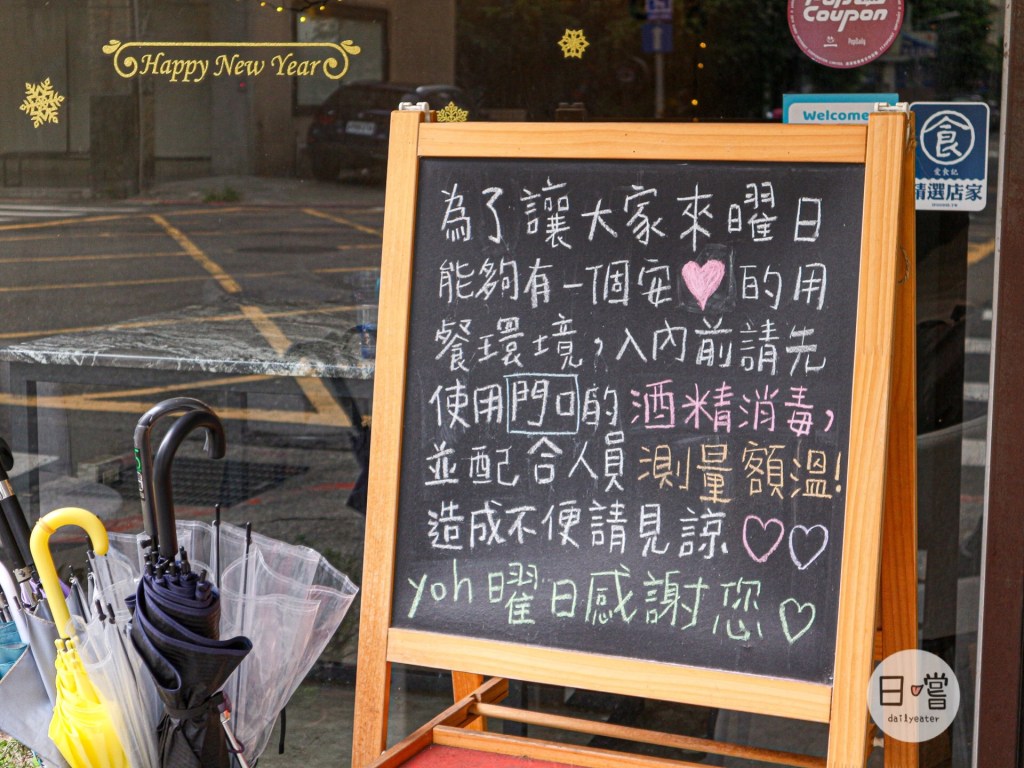 Happy New Year
Coupon
Welcome
食
愛食記
精選店家
為了讓大家來曜日
能夠有一個安♥的用
餐環境,入內前請先
使用門口的酒精消毒,
並配合人員測量額溫!
造成不便請見諒♡♡
yoh曜日感謝您♡
日嚐
dailyeater